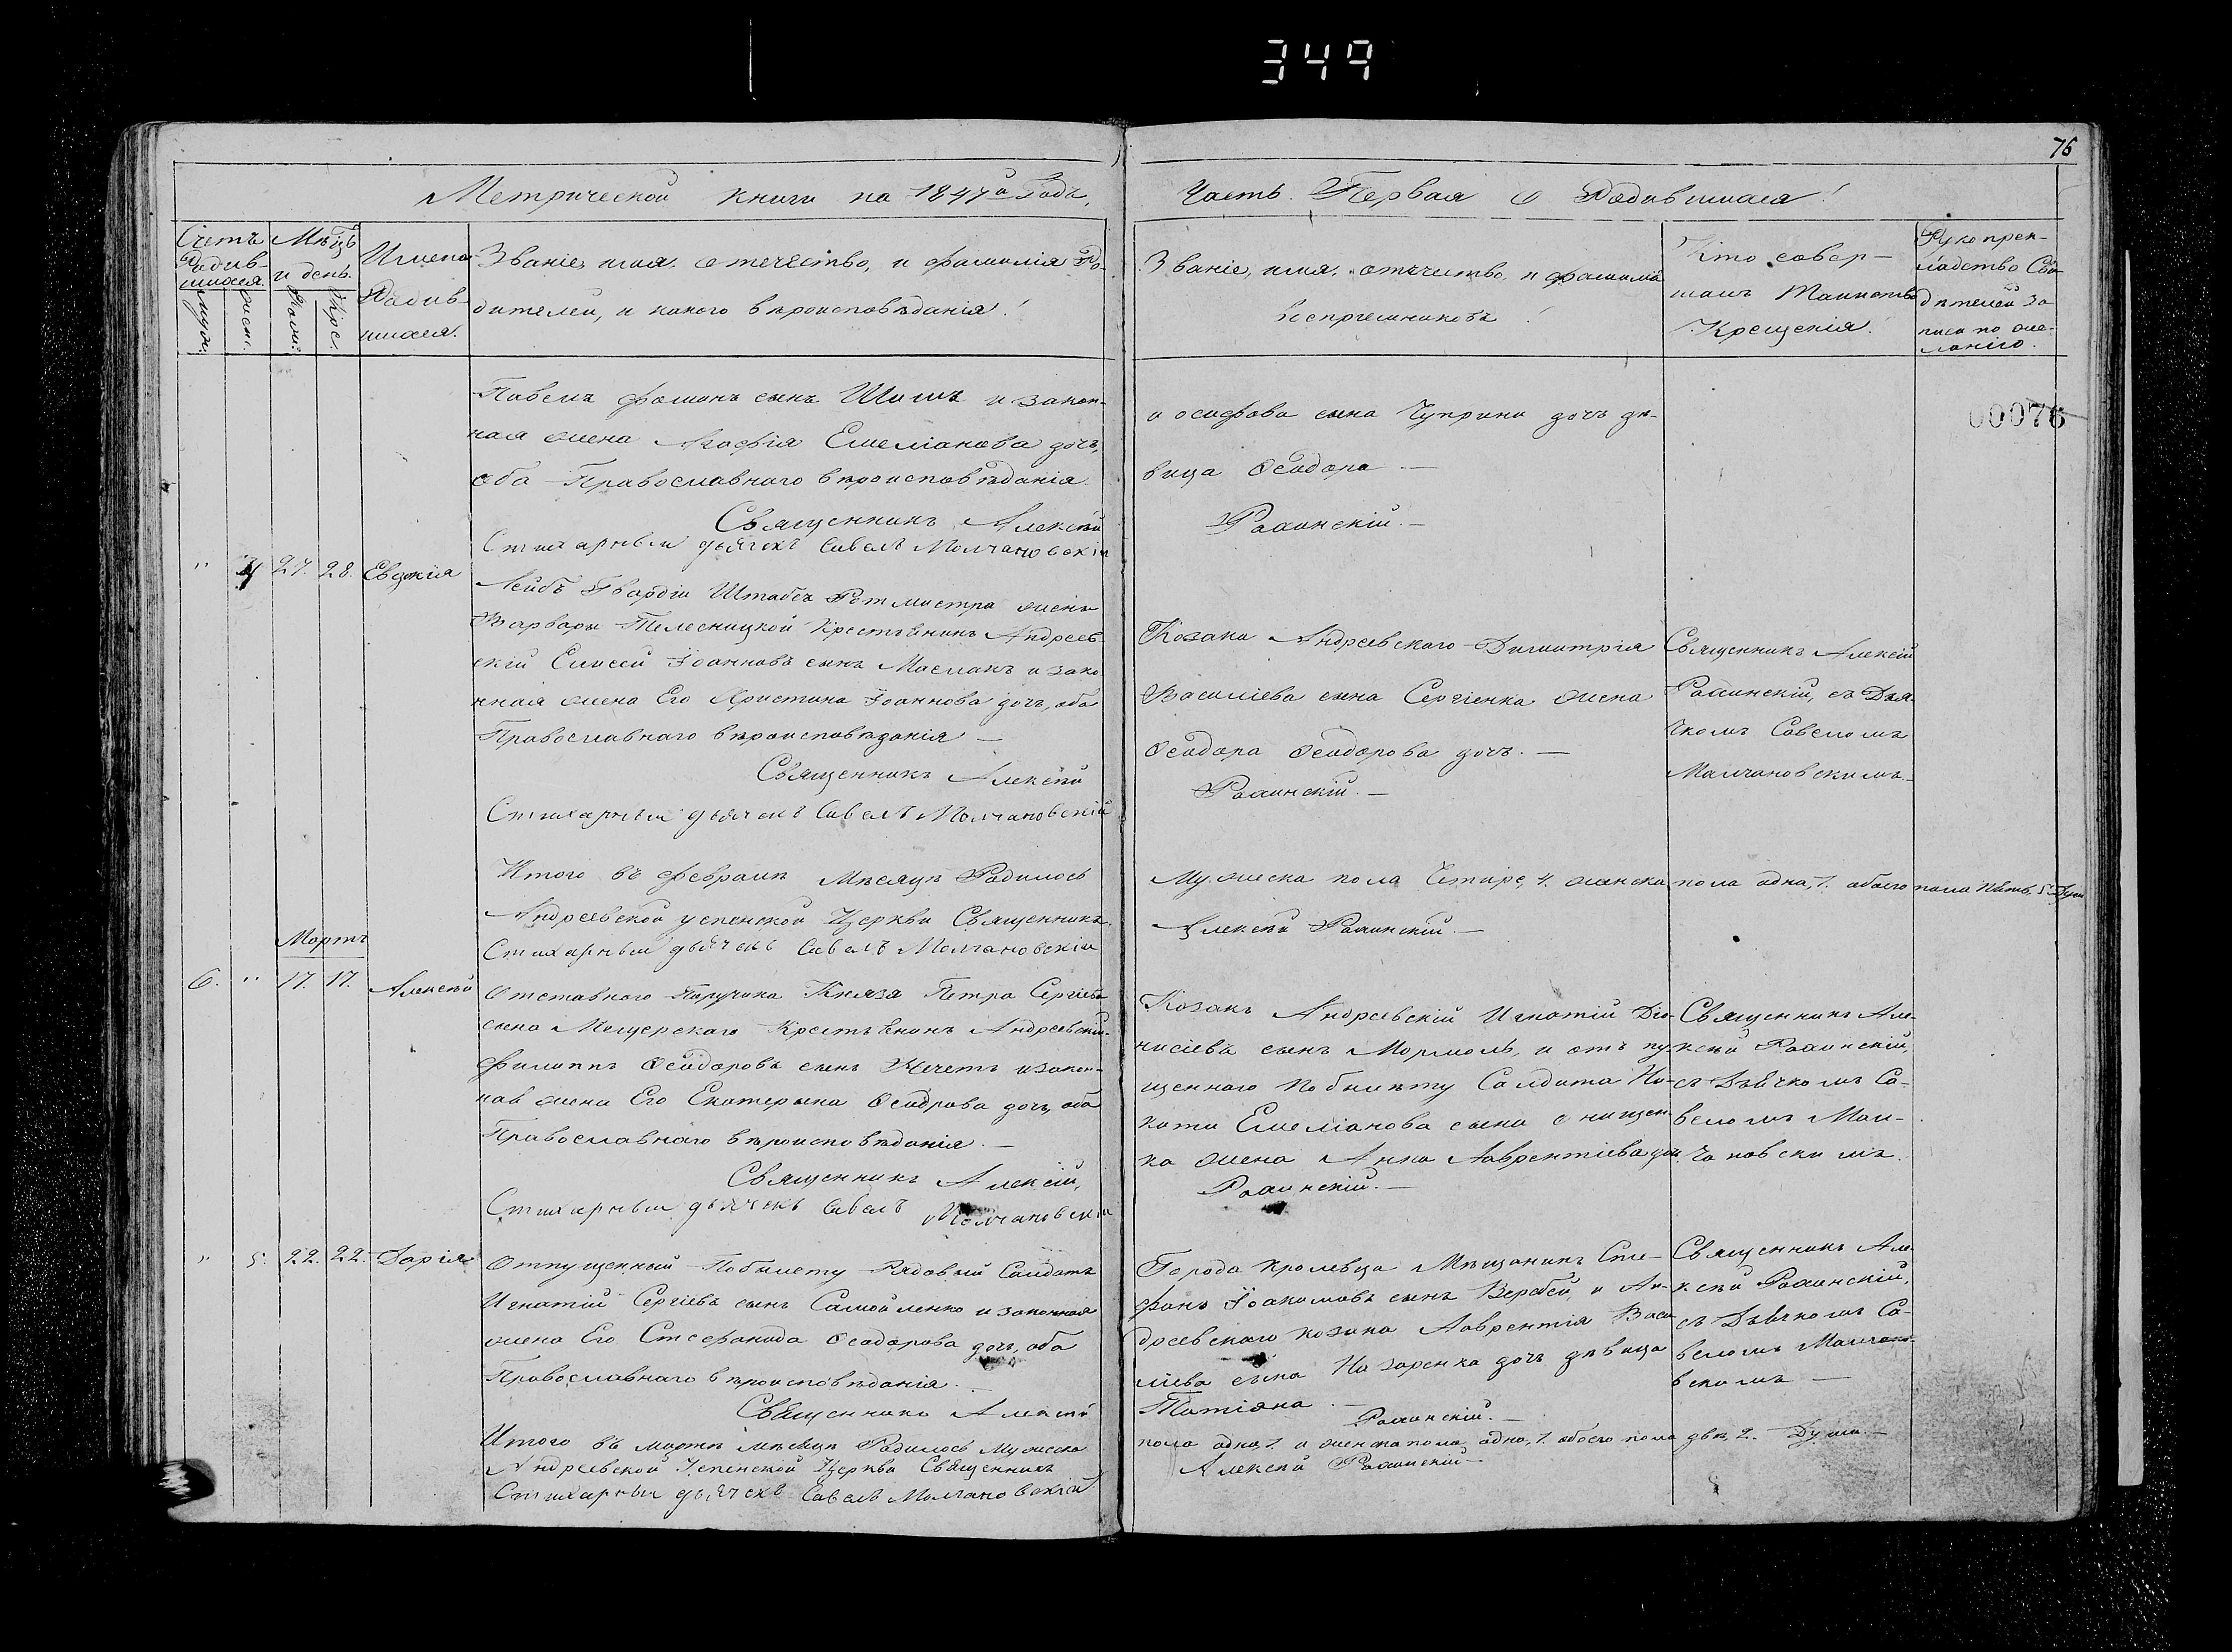 349
76
Метрической книги на 1847й Годъ,
Часть Первая о Родившихся!
Счетъ Родив-шихся.
Мужс.
Женс.
Мѣцъ и день.
Рожд:
Кре.
Имена
Родив-
шихся.
Званіе, имя, отечество, и фамилія Ро-
дителей, и какого вѣроисповѣданія!
Званіе, имя, отечество, и фамилія
воспріемниковъ!
Кто совер-
шалъ Таинство
Крещенія.
Рукоприк-
ладство Сви-
дѣтелей за-
писи по же-
ланію.
00076
Павелъ Фоминъ сынъ и закон-
ная жена Софія Емеліанова дочь,
оба Православнаго вѣроисповѣданія
Священникъ Алексѣй
Стихарный дьячекъ Савелъ Молчановскій
иосифова сына Чуприни дочь дѣ-
вица Ѳеодора —
Рашинскій. —
" 4 27. 28. Евдокія
Лейбъ Гвардіи Штабсъ Ротмистра жены
Варвары Телесницкой Крестьянинъ Андреев-
скій Елисей Іоанновъ сынъ Масланъ и зако-
нная жена Его Христина Іоаннова дочь, оба
Православнаго вѣроисповѣданія —
Священникъ Алексѣй
Стихарный дьячекъ Савелъ Молчановскій
Козака Андреевского Димитрія
Василіева сына Сергіенка жена
Ѳеодора Ѳеодорова дочь. —
Рашинскій. —
Священникъ Алексій
Рашинскій, съ Дья-
чкомъ Савеломъ
Малчановскимъ. —
Итого въ Февралѣ Мѣсяцѣ Родилось
Мужеска пола Четыре, 4. женска пола одна, 1. обоего пола Пять, 5. Душъ
Андреевской успенской Церкви Священникъ
Алексѣй Рашинскій —
Стихарный дьячекъ Савелъ Молчановскій
Мартъ
6. " 17. 17. Алексѣй
Отставного Поручика Князя Петра Сергіева
сына Мещерскаго Крестьянинъ Андреевскій
Филиппъ Ѳеодоровъ сынъ Кечетъ и закон-
ная жена Его Екатерина Ѳеодрова дочь, оба
Православнаго вѣроисповѣданія. —
Священникъ Алексій,
Стихарный дьячекъ Савелъ Молчановскій
Козакъ Андреевскій Игнатій Діо-
нисіевъ сынъ Мормоль, и отъ пу-
щенного по билѣту Салдата Ни-
киты Емеліанова сына
ка жена Анна Лаврентіева дочь.
Рашинскій. —
Священникъ Але-
ксѣй Рашинскій,
съ Дьячкомъ Са-
веломъ Мал-
чановскимъ.
" 5. 22. 22. Дарія
Отпущенный По билету Рядовый Салдатъ
Игнатій Сергіевъ сынъ Самойленко и законная
жена Его Стефанида Ѳеодорова дочь, оба
Православнаго вѣроисповѣданія. —
Священникъ Алексѣй
Города Кролевца Мѣщанинъ Сте-
фанъ Іоакимовъ сынъ Веребей, и Ан-
дреевскаго козака Лаврентія Васи-
лієва сына Назаренка дочь дѣвица
Татіяна. —
Рашинскій. —
Священникъ Але-
ксѣй Рашинскій,
съ Дьячкомъ Са-
веломъ Малчано-
вскимъ —
Итого въ мартѣ мѣсяцѣ Родилось мужеска
пола одинъ, 1. и женска пола одна, 1. обоего пола двѣ, 2. Души. —
Андреевской Успенской Церкви Священникъ
Алексѣй Рашинскій —
Стихарный дьячекъ Савелъ Молчановскій